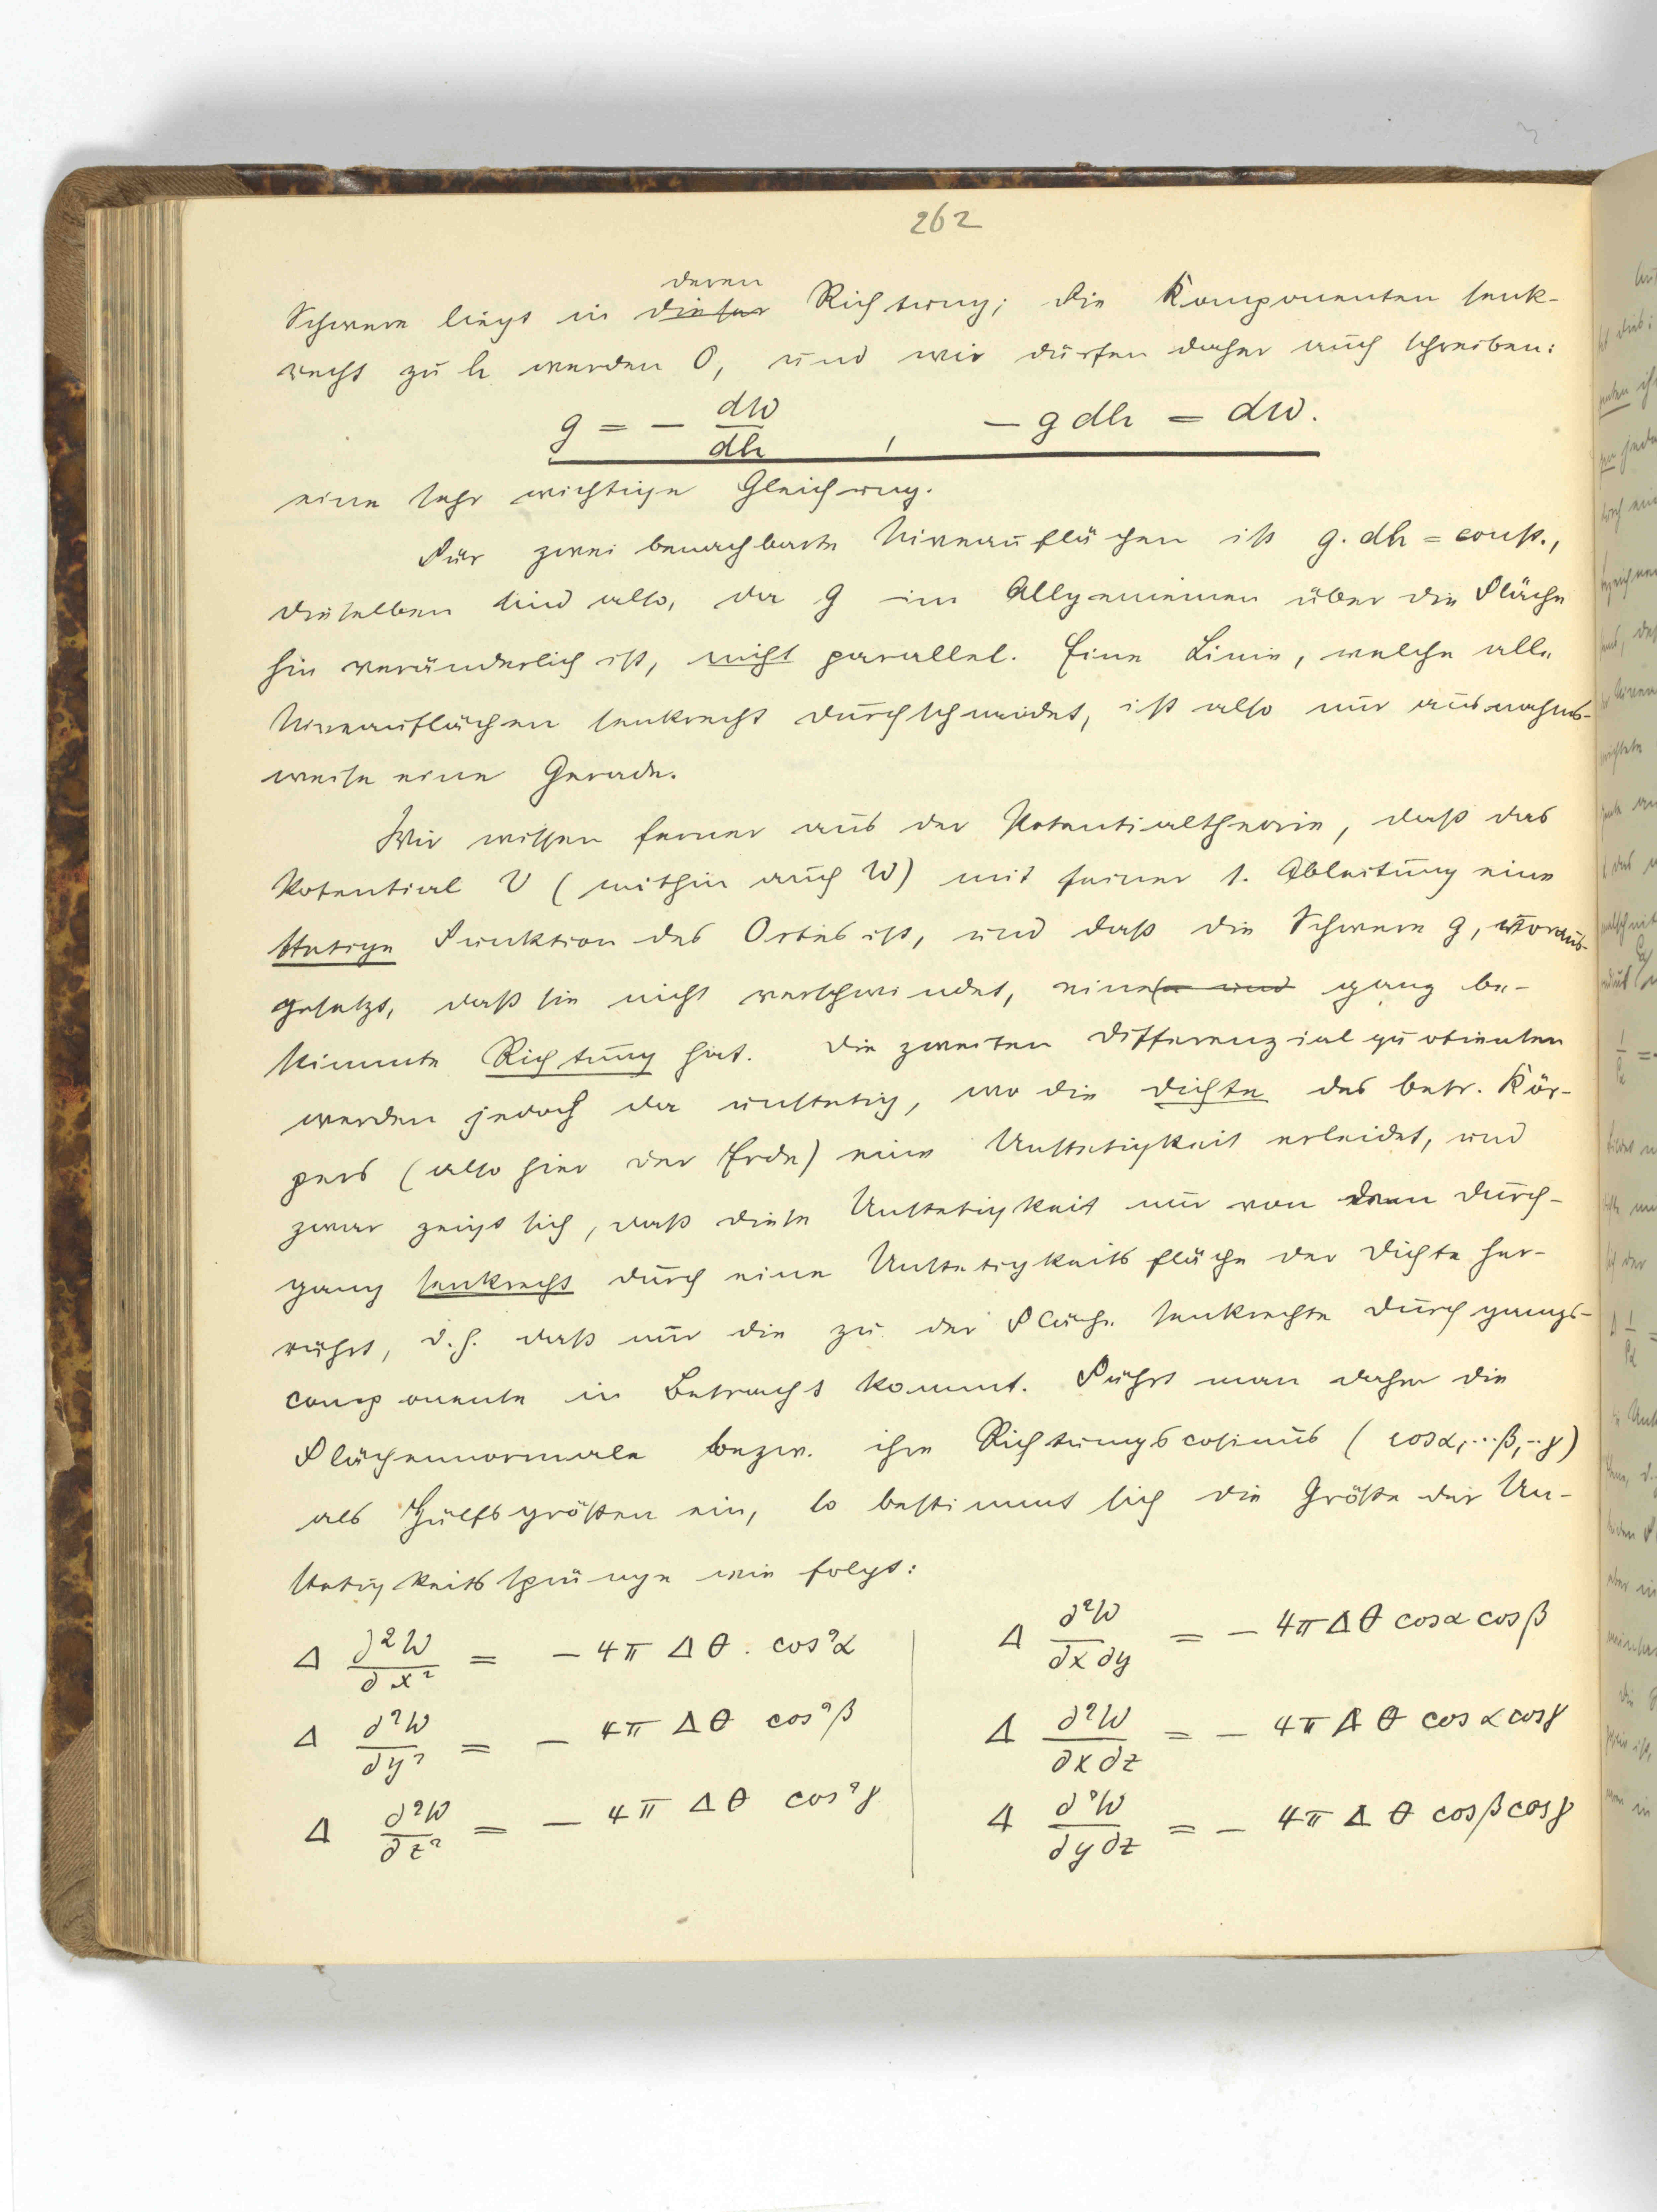 262
deren
Schwere liegt in dieser Richtung; die Komponenten senk-
recht zu h werden 0, und wir dürfen daher auch schreiben:
g = - dW/dh , - g dh = dW.
eine sehr wichtige Gleichung.
Für zwei benachbarte Niveauflächen ist g. dh = const.,
dieselben sind also, da g im Allgemeinen über die Fläche
hin veränderlich ist, nicht parallel. Eine Linie, welche alle
Niveauflächen senkrecht durchschneidet, ist also nur ausnahms-
weise eine Gerade.
Wir wissen ferner aus der Potentialtheorie, daß das
Potential V (mithin auch W) mit seiner 1. Ableitung eine
stetige Funktion des Ortes ist, und daß die Schwere g, voraus-
gesetzt, daß sie nicht verschwindet, eine und ganz be-
stimmte Richtung hat. Die zweiten Differenzialquotienten
werden jedoch da unstetig, wo die Dichte des betr. Kör-
pers (also hier der Erde) eine Unstetigkeit erleidet, und
zwar zeigt sich, daß diese Unstetigkeit nur von dem Durch-
gang senkrecht durch eine Unstetigkeitsfläche der Dichte her-
rührt, d.h. daß nur die zu der Fläche senkrechte Durchgangs-
componente in Betracht kommt. Führt man daher die
Flächennormale bezw. ihre Richtungscosinus (cosα,...β,..γ)
als Hülfsgrößen ein, so bestimmt sich die Größe der Un-
stetigkeitssprünge wie folgt:
Δ ∂²W/∂x² = - 4π Δθ. cos²α
Δ ∂²W/∂y² = - 4π Δθ cos²β
Δ ∂²W/∂z² = - 4π Δθ cos²γ
Δ ∂²W/∂x∂y = - 4π Δθ cosα cosβ
Δ ∂²W/∂x∂z = - 4π Δθ cosα cosγ
Δ ∂²W/∂y∂z = - 4π Δθ cosβ cosγ